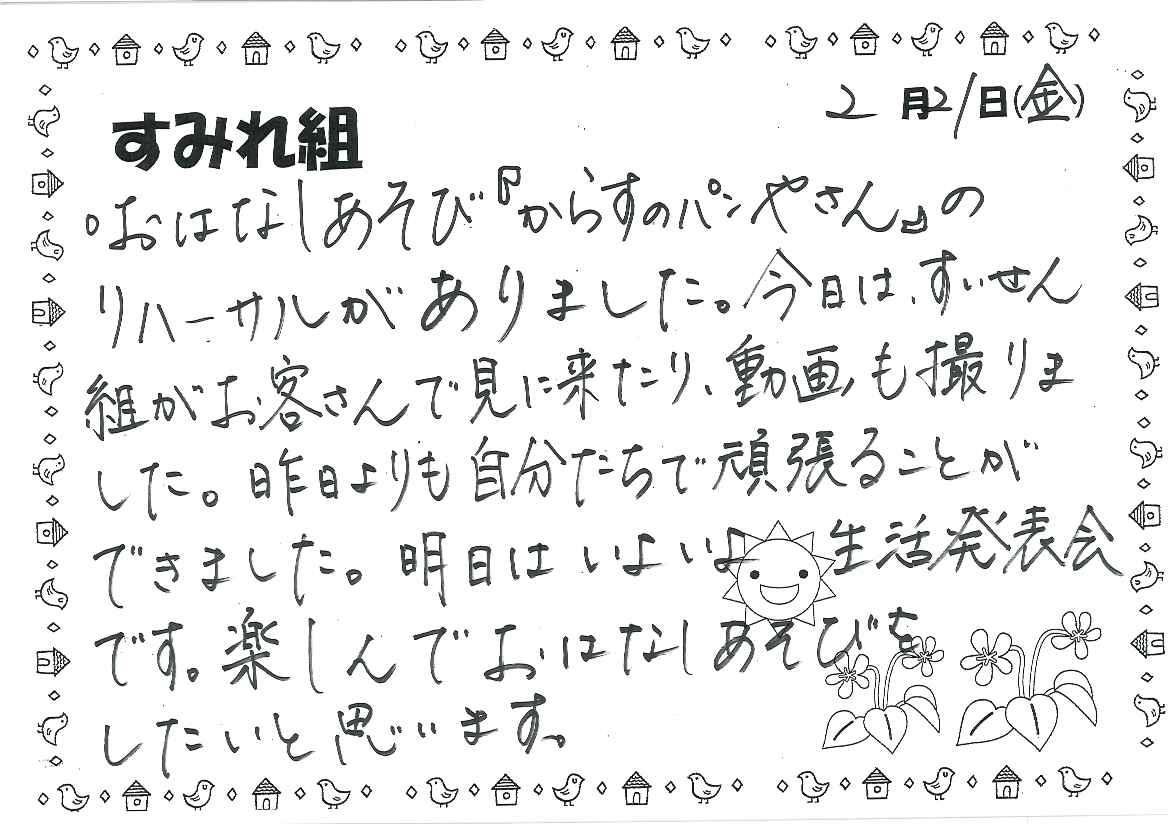 2月21日(金)
すみれ組
○おはなしあそび『からすのパンやさん』の
リハーサルがありました。今日は、すいせん
組がお客さんで見に来たり、動画も撮りま
した。昨日よりも自分たちで頑張ることが
できました。明日はいよいよ生活発表会
です。楽しんでおはなしあそびを
したいと思います。